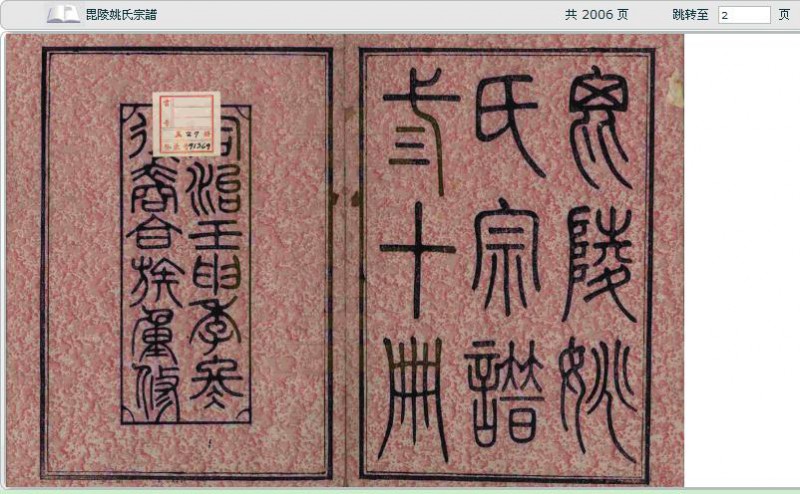 毘陵姚氏宗譜
共 2006 页
跳转至 2 页
毘陵姚
氏宗譜
弎十冊
同治壬申季冬
裔合族重修